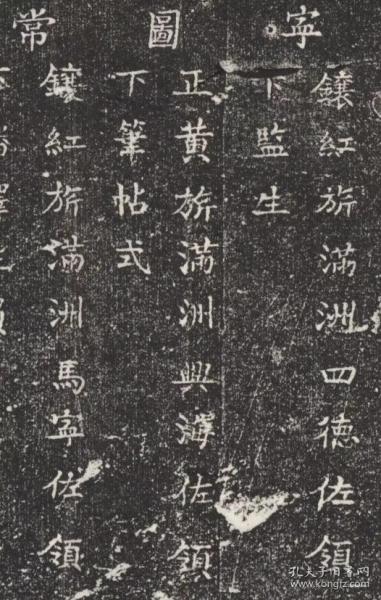 寕　圖　常
鑲紅旂滿洲四德佐領
下監生
正黃旂滿洲興溥佐領
下筆帖式
鑲紅旂滿洲馬寕佐領
孔夫子旧书网
www.kongfz.com